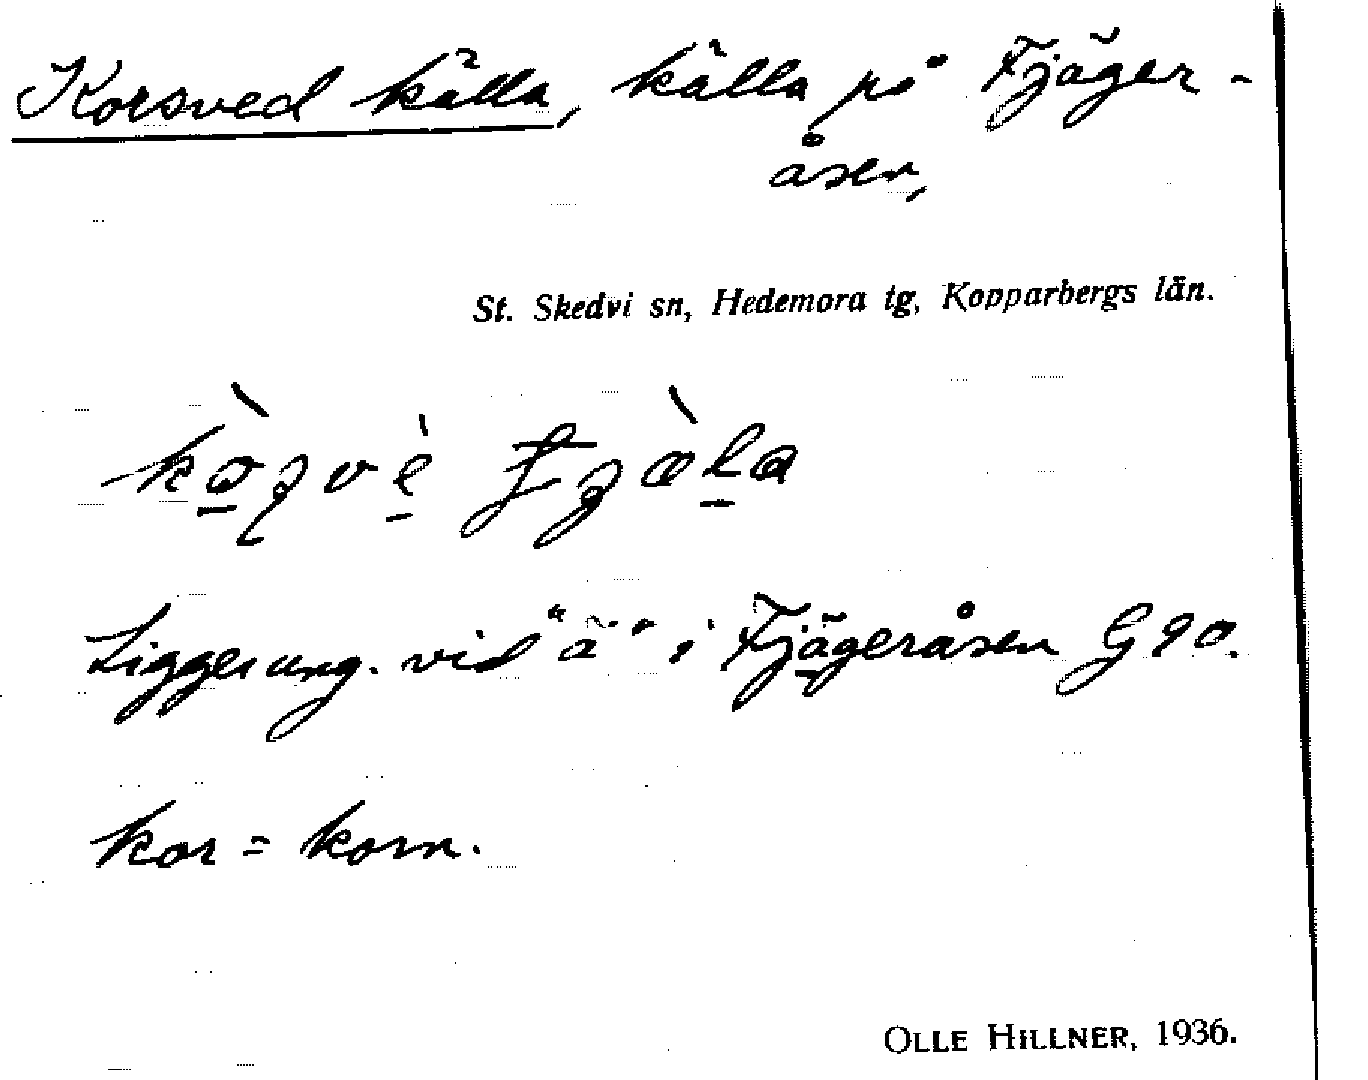 Korsved källa, källa på Fjäger-
åsen,
St. Skedvi sn, Hedemora tg, Kopparbergs län.
Ligger ung. vid "ä" i Fjägeråsen G 90.
kor = korn.
OLLE HILLNER, 1936.